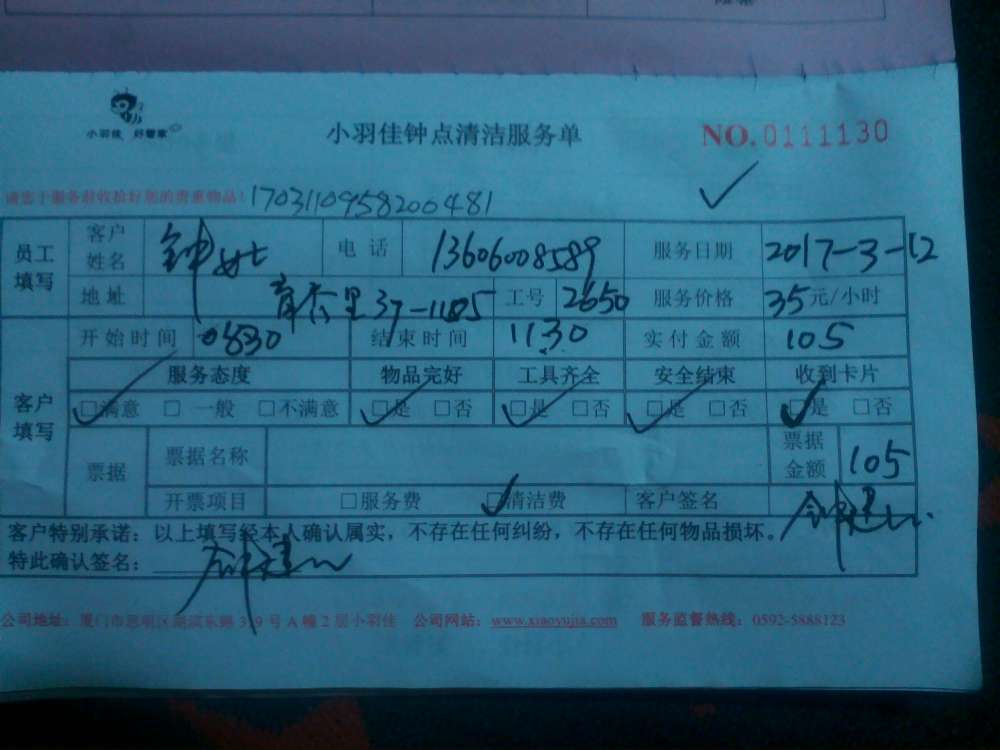 小羽佳 好管家
小羽佳钟点清洁服务单
NO.0111130
请您于服务前收拾好您的贵重物品!
1703110958200481
员工填写 客户姓名 钟女士 电话 13606008589 服务日期 2017-3-12
地址 37-1105 工号 2650 服务价格 35元/小时
客户填写 开始时间 0830 结束时间 1130 实付金额 105
服务态度 物品完好 工具齐全 安全结束 收到卡片
☑满意 □一般 □不满意 ☑是 □否 ☑是 □否 ☑是 □否 ☑是 □否
票据 票据名称 票据金额 105
开票项目 □服务费 ☑清洁费 客户签名
客户特别承诺:以上填写经本人确认属实,不存在任何纠纷,不存在任何物品损坏。
特此确认签名:
公司地址:厦门市思明区湖滨东路319号A幢2层小羽佳 公司网站:www.xiaoyujia.com 服务监督热线:0592-5888123